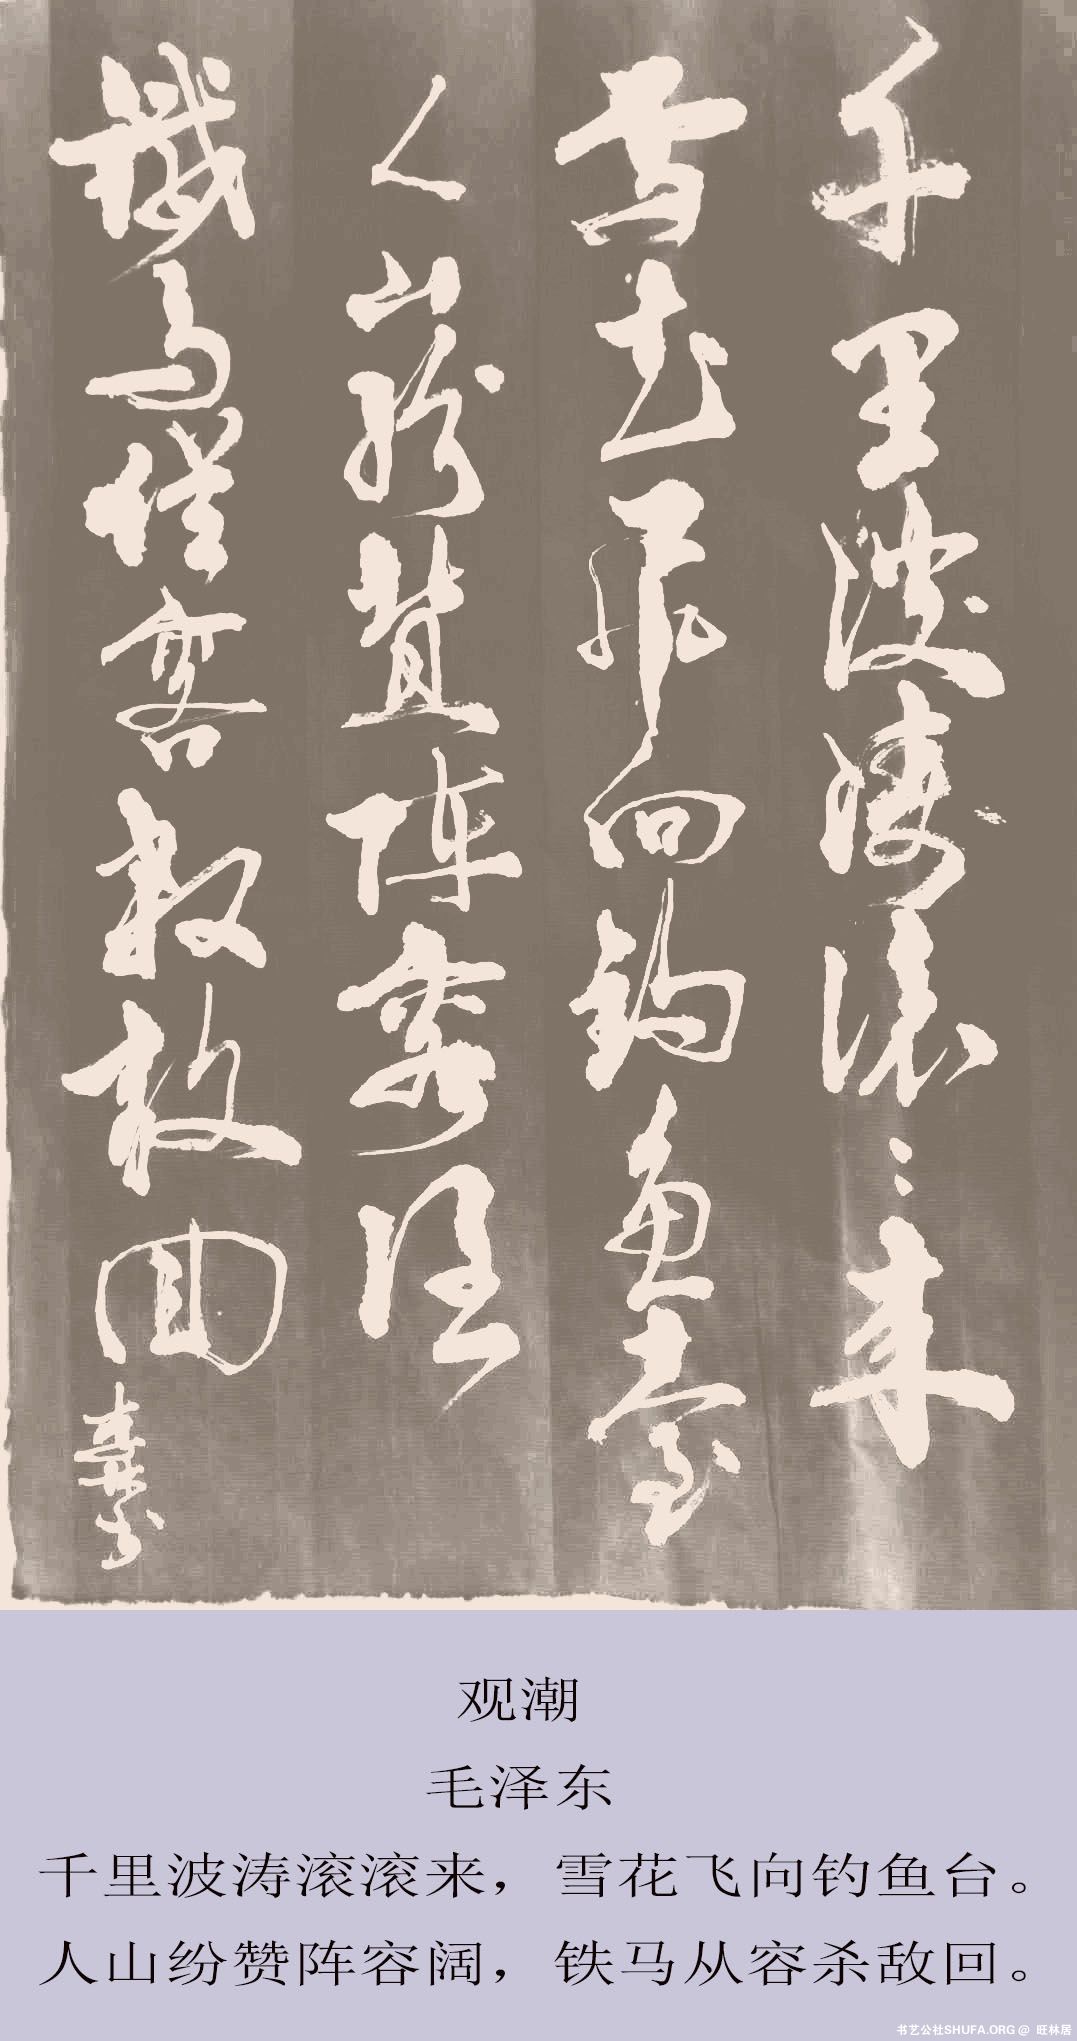 千里波濤滚滚来
雪花飛向钓魚臺
人山紛贊陣容闊
鐵馬從容殺敵回
观潮
毛泽东
千里波涛滚滚来，雪花飞向钓鱼台。
人山纷赞阵容阔，铁马从容杀敌回。
书艺公社SHUFA.ORG @ 旺林居